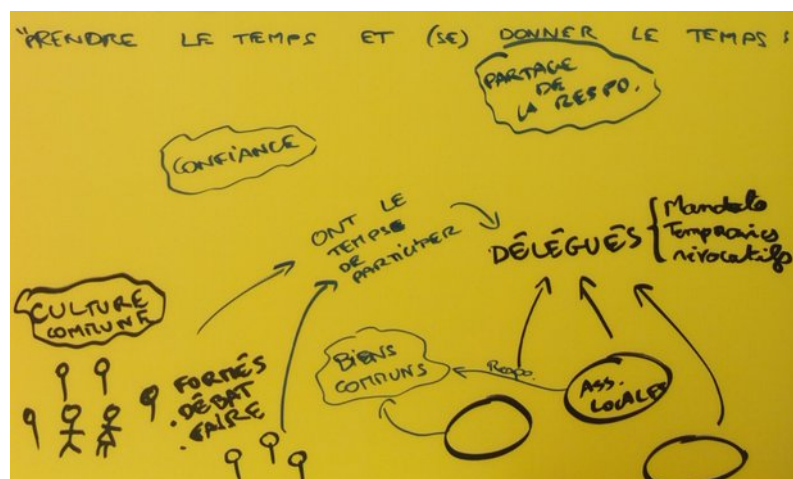 "PRENDRE LE TEMPS ET (SE) DONNER LE TEMPS :
PARTAGE
DE
LA RESPO.
CONFIANCE
ONT LE
TEMPS
DE
PARTICIPER
DÉLÉGUÉS {
Mandats
Temporaires
révocatifs
CULTURE
COMMUNE
FORMÉS
. DÉBAT
. FAIRE
BIENS
COMMUNS
Respo.
ASS.
LOCALES